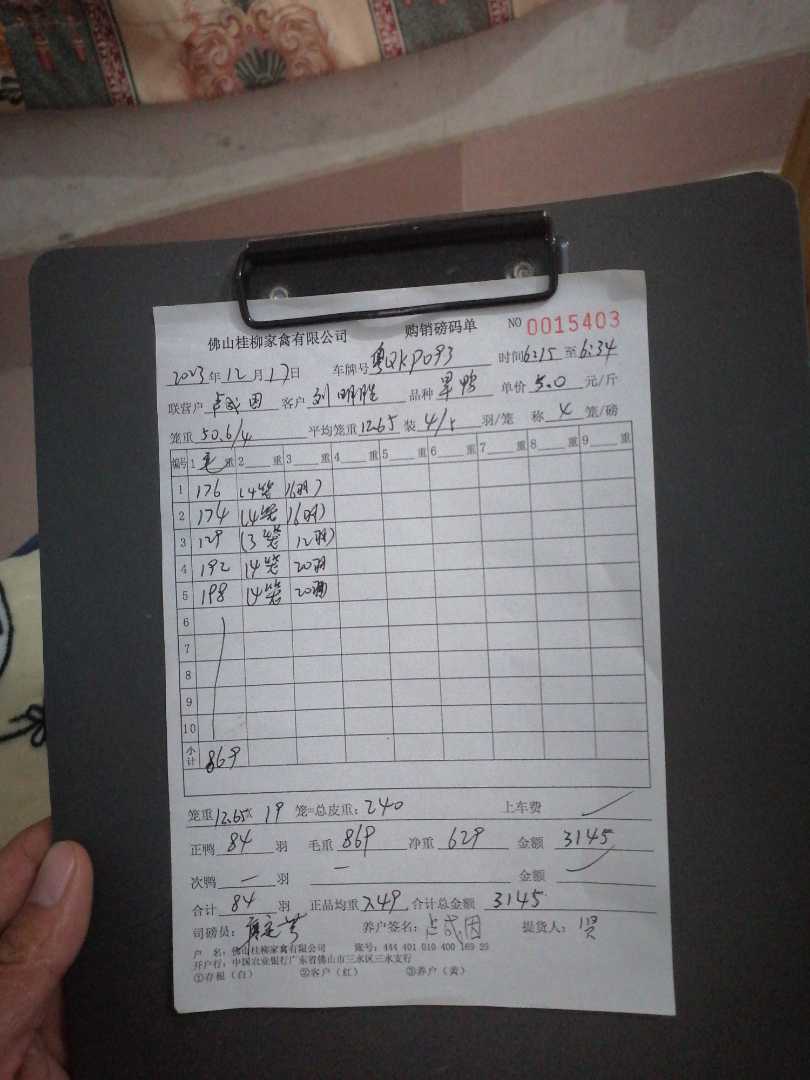 佛山桂柳家禽有限公司 购销磅码单 NO 0015403
2023年12月17日 车牌号 粤QKP093 时间6:15至6:34
联营户 客户 刘明胜 品种 单价 5.0 元/斤
笼重 50.6/4 平均笼重12.65 装 4/5 羽/笼 称 4 笼/磅
编号 1 毛 重 2 重 3 重 4 重 5 重 6 重 7 重 8 重 9 重
1 176 (4笼 16羽)
2 174 (4笼 16羽)
3 129 (3笼 12羽)
4 192 (4笼 20羽
5 198 (4笼 20羽
6
7
8
9
10
小计 869
笼重 12.65X 19 笼=总皮重: 240 上车费
正鸭 84 羽 毛重 869 净重 629 金额 3145
次鸭 — 羽 — 金额
合计 84 羽 正品均重 7.49 合计总金额 3145
司磅员: 养户签名: 提货人:
户 名: 佛山桂柳家禽有限公司 账号: 444 401 010 400 169 29
开户行: 中国农业银行广东省佛山市三水区三水支行
①存根(白) ②客户(红) ③养户(黄)